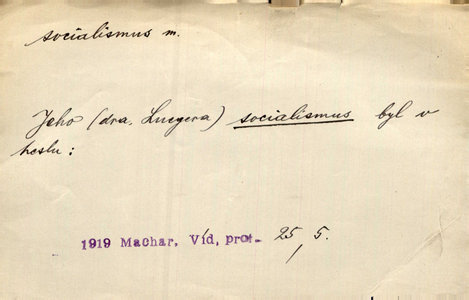 socialismus m.
Jeho (dra. Luegera) socialismus byl v
heslu:
1919 Machar, Víd, prof. 25, 5.